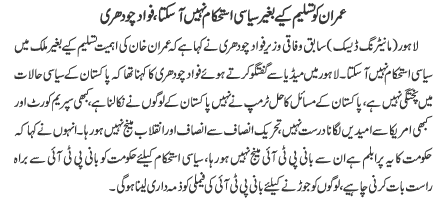 عمران کو تسلیم کیے بغیر سیاسی استحکام نہیں آسکتا، فواد چودھری
لاہور (مانیٹرنگ ڈیسک) سابق وفاقی وزیر فواد چودھری نے کہا ہے کہ عمران خان کی اہمیت تسلیم کیے بغیر ملک میں
سیاسی استحکام نہیں آسکتا۔ لاہور میں میڈیا سے گفتگو کرتے ہوئے فواد چودھری کا کہنا تھا کہ پاکستان کے سیاسی حالات میں
پختگی نہیں ہے، پاکستان کے مسائل کا حل ٹرمپ نے نہیں پاکستان کے لوگوں نے نکالنا ہے، کبھی سپریم کورٹ اور
کبھی امریکا سے امیدیں لگانا درست نہیں، تحریک انصاف سے انصاف اور انقلاب مینج نہیں ہو رہا۔ انہوں نے کہا کہ
حکومت کا یہ پرابلم ہے ان سے بانی پی ٹی آئی مینج نہیں ہو رہا، سیاسی استحکام کیلئے حکومت کو بانی پی ٹی آئی سے براہ
راست بات کرنی چاہیے، لوگوں کو جوڑنے کیلئے بانی پی ٹی آئی کی فیملی کو ذمہ داری لینا ہوگی۔